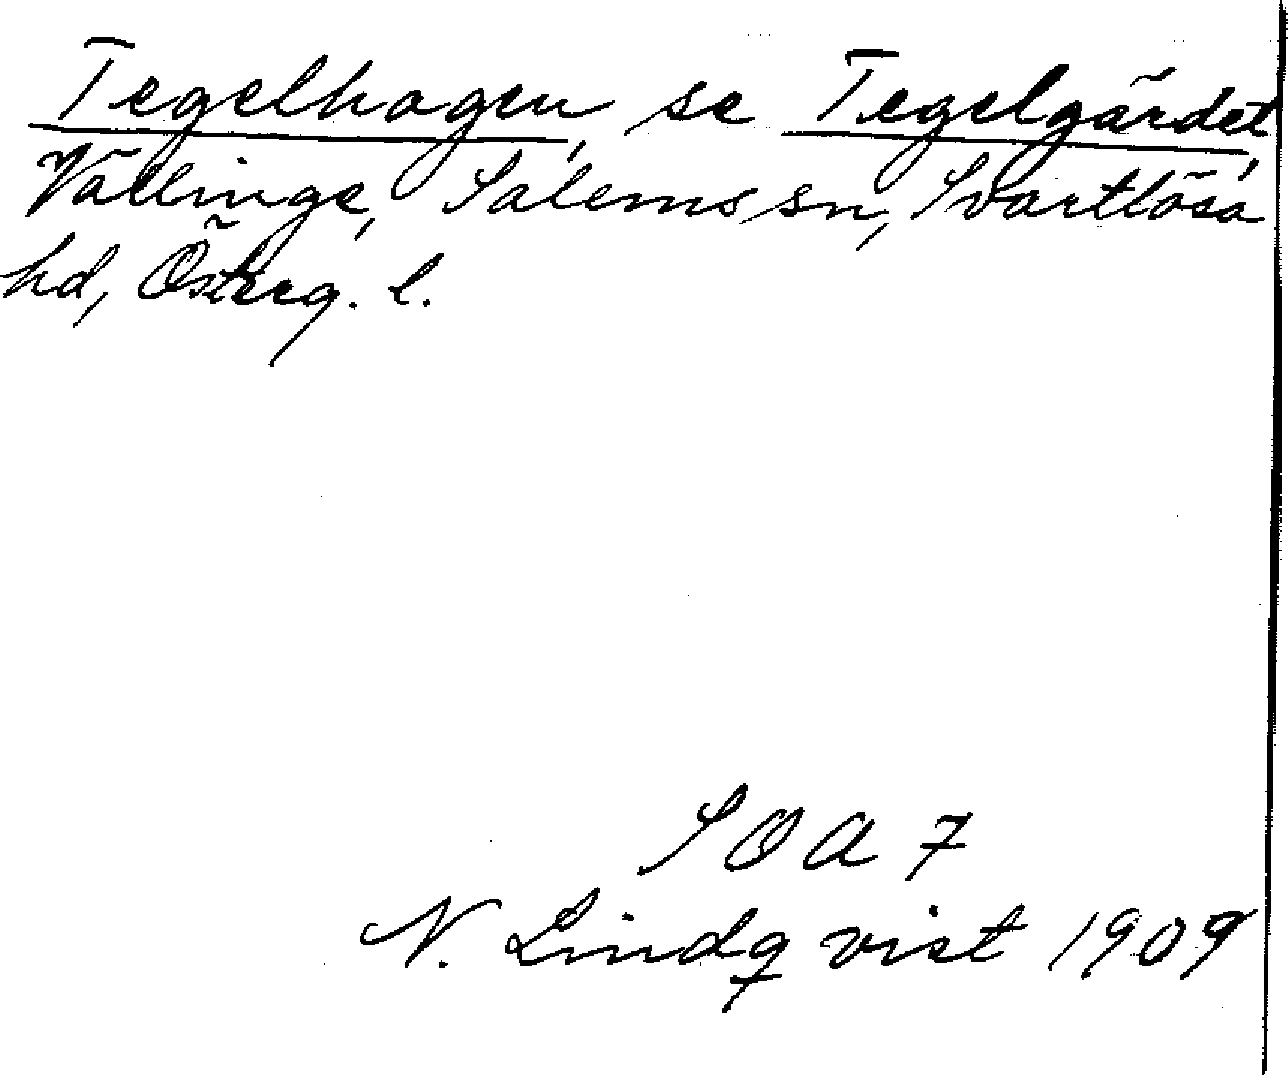 Tegelhagen, se Tegelgärdet,
Vällinge, Salems sn, Svartlösa
hd, Österg. l.
SOA 7
N. Lindqvist 1909